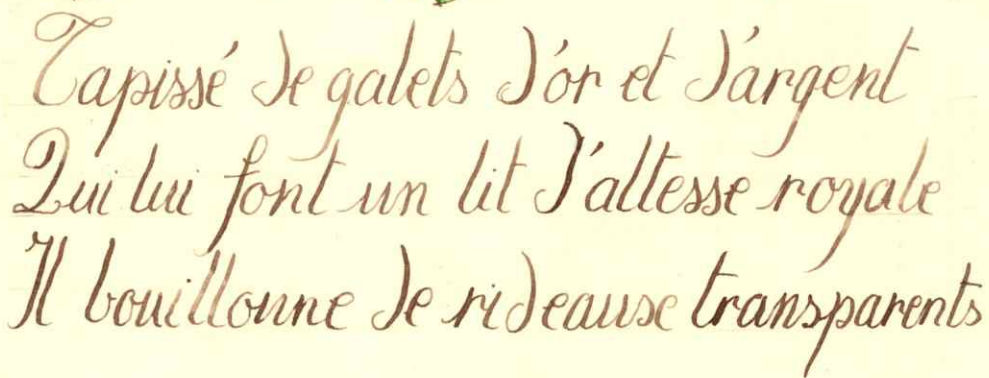 Tapissé de galets d'or et d'argent
Qui lui font un lit d'altesse royale
Il bouillonne de rideaux transparents